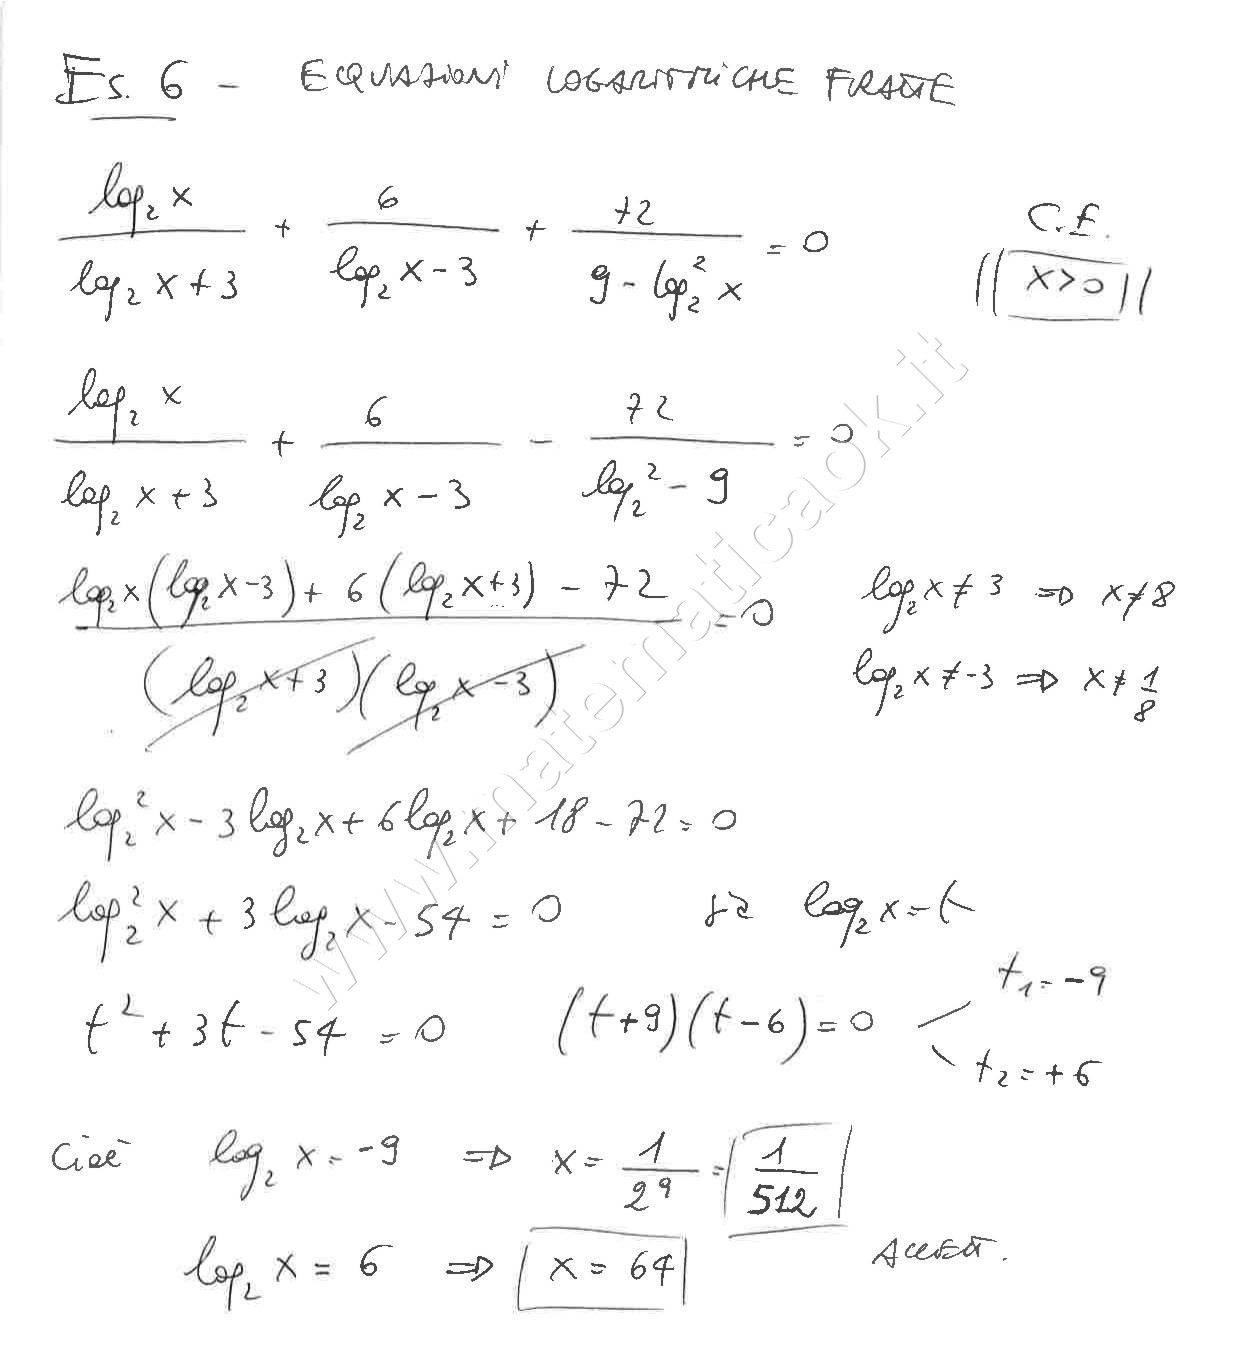 Es. 6 - EQUAZIONI LOGARITMICHE FRATTE
log₂ x / (log₂ x + 3) + 6 / (log₂ x - 3) + 72 / (9 - log₂² x) = 0
C.E.
x > 0
log₂ x / (log₂ x + 3) + 6 / (log₂ x - 3) - 72 / (log₂² - 9) = 0
(log₂ x (log₂ x - 3) + 6 (log₂ x + 3) - 72) / ((log₂ x + 3)(log₂ x - 3)) = 0
log₂ x ≠ 3 ⇒ x ≠ 8
log₂ x ≠ -3 ⇒ x ≠ 1/8
log₂² x - 3 log₂ x + 6 log₂ x + 18 - 72 = 0
log₂² x + 3 log₂ x - 54 = 0 sia log₂ x = t
t² + 3t - 54 = 0 (t + 9)(t - 6) = 0
t₁ = -9
t₂ = +6
Cioè log₂ x = -9 ⇒ x = 1/2⁹ = 1/512
log₂ x = 6 ⇒ x = 64
Accett.
www.matematicaok.it